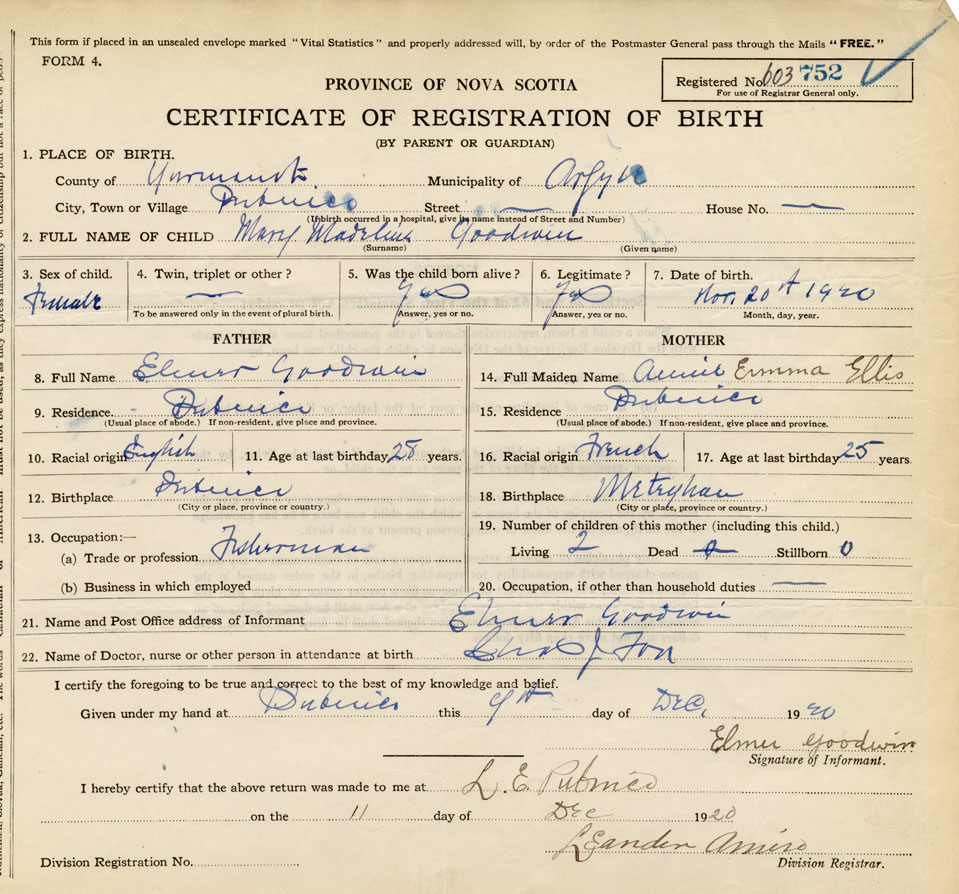 This form if placed in an unsealed envelope marked "Vital Statistics" and properly addressed will, by order of the Postmaster General pass through the Mails "FREE."
FORM 4.
Registered No. 603 752
For use of Registrar General only.
PROVINCE OF NOVA SCOTIA
CERTIFICATE OF REGISTRATION OF BIRTH
(BY PARENT OR GUARDIAN)
1. PLACE OF BIRTH.
County of Yarmouth Municipality of Argyle
City, Town or Village Pubnico Street — House No. —
(If birth occurred in a hospital, give its name instead of Street and Number)
2. FULL NAME OF CHILD Mary Madeline Goodwin
(Surname) (Given name)
3. Sex of child. 4. Twin, triplet or other? 5. Was the child born alive? 6. Legitimate? 7. Date of birth.
Female — Yes Yes Nov. 20th 1920
To be answered only in the event of plural birth. Answer, yes or no. Answer, yes or no. Month, day, year.
FATHER MOTHER
8. Full Name Elmer Goodwin 14. Full Maiden Name Annie Emma Ellis
9. Residence Pubnico 15. Residence Pubnico
(Usual place of abode.) If non-resident, give place and province. (Usual place of abode.) If non-resident, give place and province.
10. Racial origin English 11. Age at last birthday 28 years. 16. Racial origin French 17. Age at last birthday 25 years.
12. Birthplace Pubnico 18. Birthplace Meteghan
(City or place, province or country.) (City or place, province or country.)
13. Occupation:— 19. Number of children of this mother (including this child.)
(a) Trade or profession Fisherman Living 2 Dead Stillborn 0
(b) Business in which employed 20. Occupation, if other than household duties —
21. Name and Post Office address of Informant Elmer Goodwin
22. Name of Doctor, nurse or other person in attendance at birth. Chas J Fox
I certify the foregoing to be true and correct to the best of my knowledge and belief.
Given under my hand at Pubnico this 9th day of Dec. 1920
Elmer Goodwin
Signature of Informant.
I hereby certify that the above return was made to me at L. E. Pubnico
on the 11 day of Dec 1920
Leander Amiro
Division Registration No. Division Registrar.